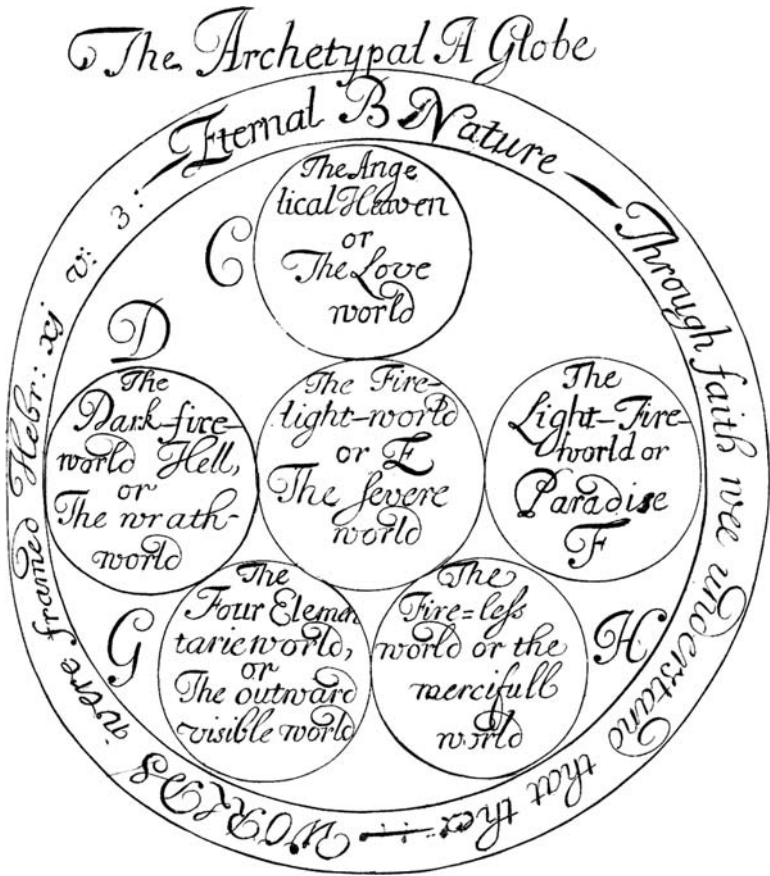 The Archetypal A Globe
Eternal B Nature — Through faith wee understand that the WORLDS were framed Hebr: xj v: 3:—
C
The Ange
lical Heaven
or
The Love
world
D
The
Dark-fire-
world Hell,
or
The wrath-
world
The Fire-
light-world
or E
The severe
world
The
Light-Fire-
world or
Paradise
F
G
The
Four Elemen
tarie world,
or
The outward
visible world
The
Fire=less
world or the
mercifull
world
H